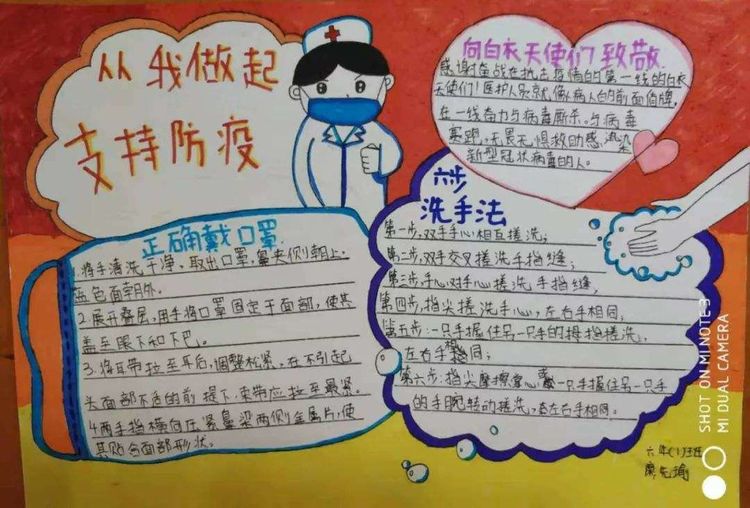 从我做起
支持防疫
向白衣天使们致敬
感谢奋战在抗击疫情的第一线的白衣
天使们！医护人员就像病人的前面盾牌,
在一线奋力与病毒厮杀。与病毒
赛跑,无畏无惧救助感染
新型冠状病毒的人。
正确戴口罩
1.将手清洗干净。取出口罩,鼻夹侧朝上.
蓝色面朝外。
2.展开叠层,用手将口罩固定于面部,使其
盖至眼下和下巴。
3.将耳带拉至耳后,调整松紧,在不引起
头面部不适的前提下.束带应拉至最紧。
4.两手指横向压紧鼻梁两侧金属片,使
其贴合面部形状。
六步
洗手法
第一步,双手手心相互搓洗;
第二步,双手交叉搓洗手指缝;
第三步,手心对手心搓洗手指缝;
第四步,指尖搓洗手心,左右手相同;
第五步:一只手握住另一只手的拇指搓洗,
左右手相同;
第六步:指尖摩擦掌心或一只手握住另一只手
的手腕转动搓洗,左右手相同。
六年(1)班
SHOT ON MI NOTE 3
MI DUAL CAMERA